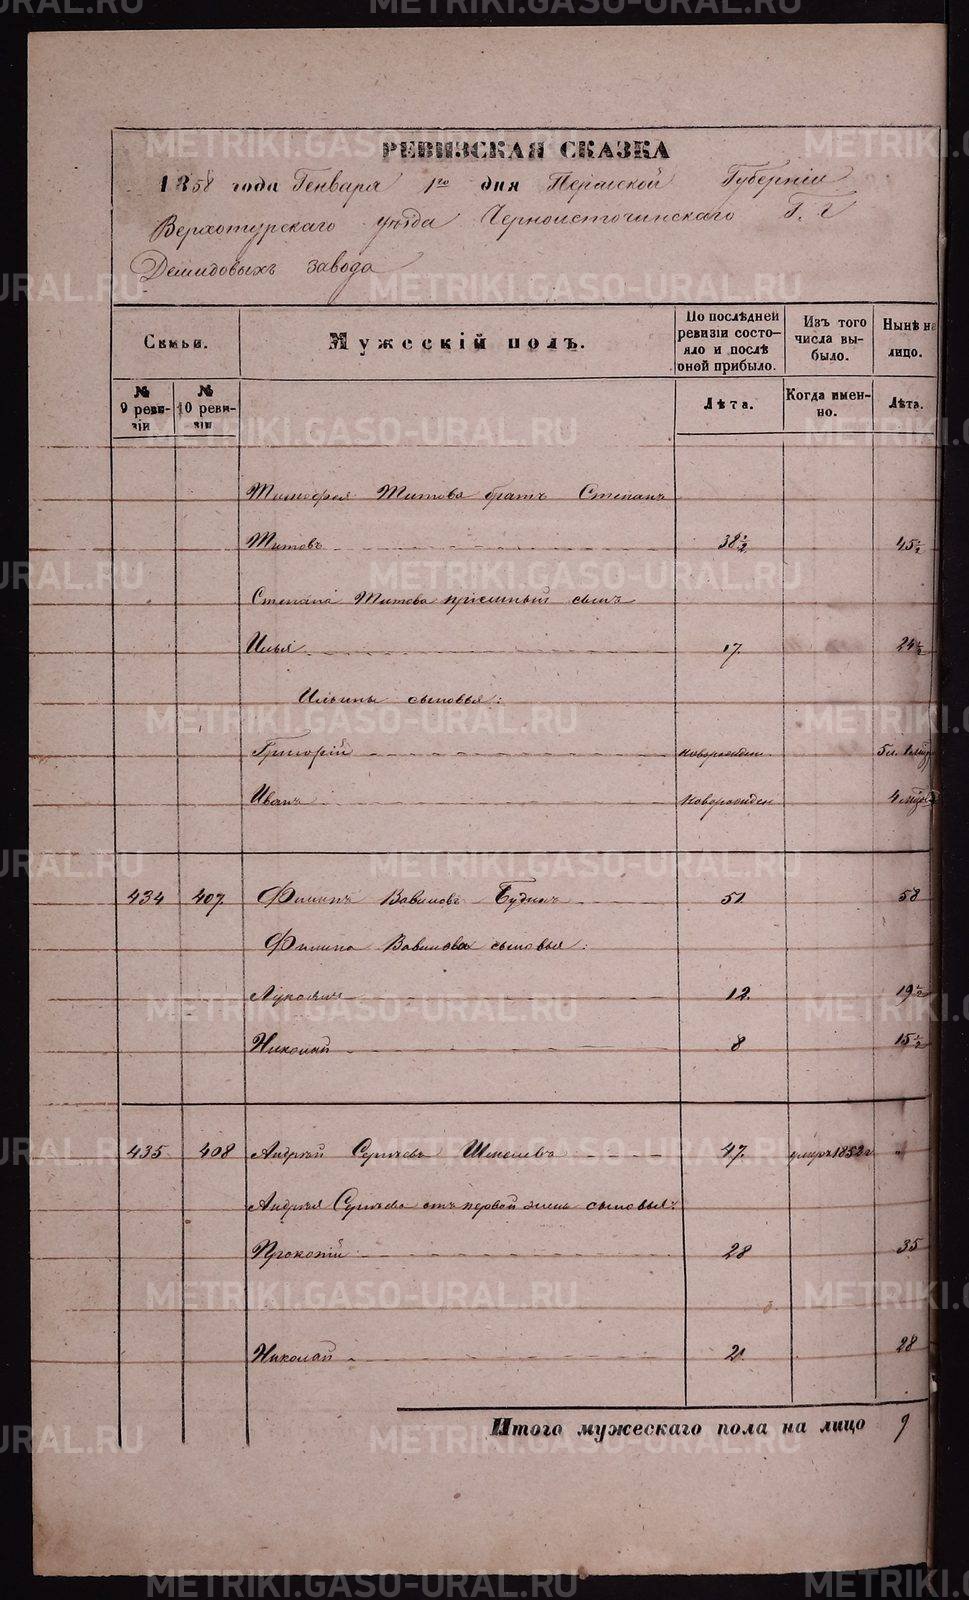 РЕВИЗСКАЯ СКАЗКА
1858 года Генваря 1го дня Пермской Губерніи
Верхотурскаго уѣзда Черноисточинскаго Г. Г.
Демидовыхъ завода
Семьи.
Мужескій полъ.
По послѣдней ревизіи состояло и послѣ оней прибыло.
Изъ того числа выбыло.
Нынѣ на лицо.
№ 9 ревизіи
№ 10 ревизіи
Лѣта.
Когда именно.
Лѣта.
Тимофея Титова братъ Степанъ
Титовъ 38½ 45½
Степана Титова пріемный сынъ
Илья 17. 24½
Ильины сыновья:
Григорій новорожден.
Иванъ новорожден 4
434 407. Филипъ Вавиловъ 51 58
Филипа Вавилова сыновья:
12. 19½
Николай 8 15½
435 408 Андрей Сергѣевъ Шмелевъ 47. умеръ 1852 г. "
Андрея Сергѣева отъ первой жены сыновья:
Прокопій 28 35
Николай 21 28
Итого мужескаго пола на лицо 9
METRIKI.GASO-URAL.RU